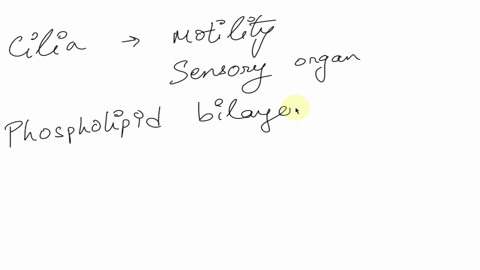 Cilia → Motility
Sensory organ
Phospholipid bilaye